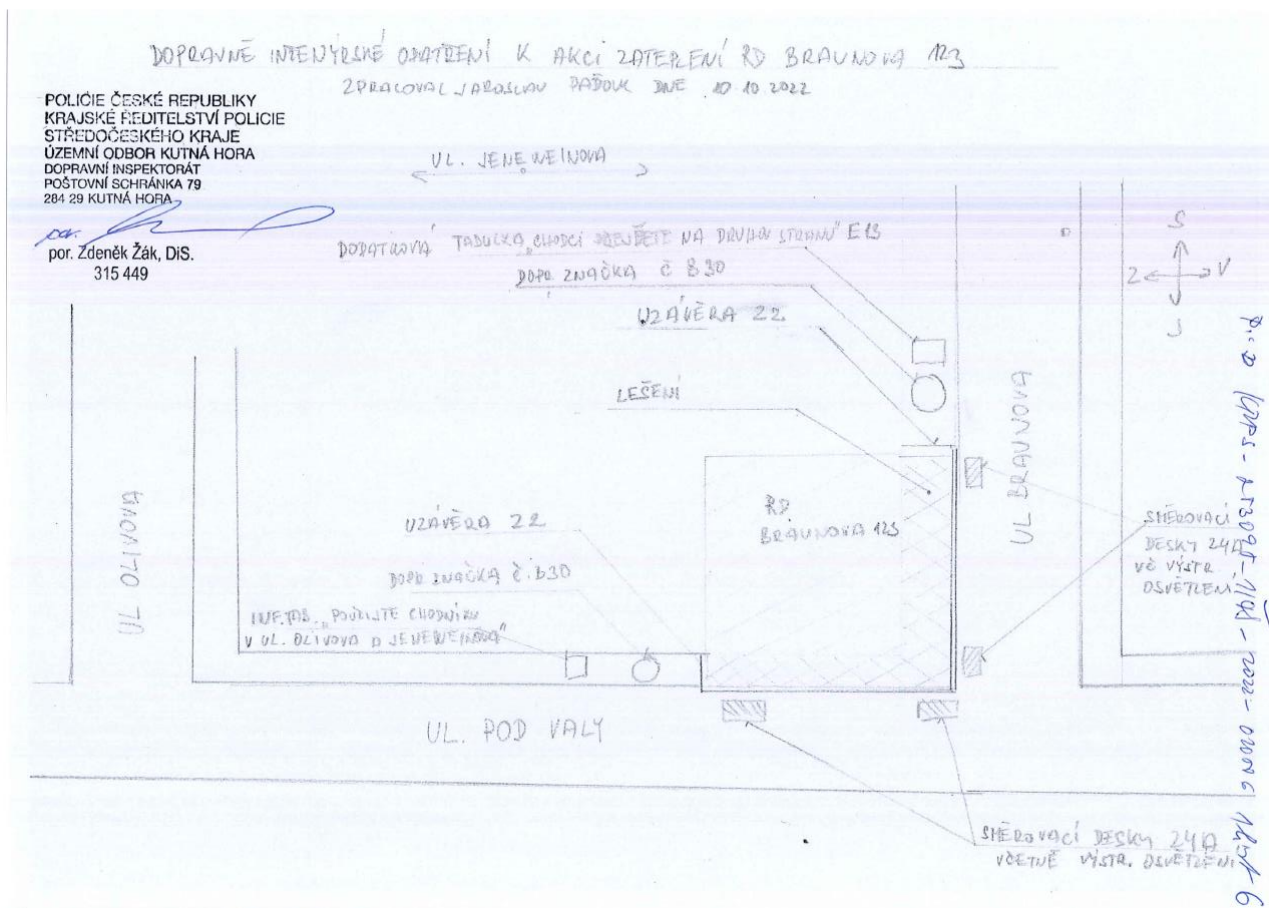 DOPRAVNĚ INTENÝRSKÉ OPATŘENÍ K AKCI ZATEPLENÍ RD BRAUNOVA 123
ZPRACOVAL JAROSLAV DNE 10.10.2022
POLICIE ČESKÉ REPUBLIKY
KRAJSKÉ ŘEDITELSTVÍ POLICIE
STŘEDOČESKÉHO KRAJE
ÚZEMNÍ ODBOR KUTNÁ HORA
DOPRAVNÍ INSPEKTORÁT
POŠTOVNÍ SCHRÁNKA 79
284 29 KUTNÁ HORA
por. Zdeněk Žák, DiS.
315 449
UL. JENEWEINOVA
DODATKOVÁ TABULKA „CHODCI PŘEJDĚTE NA DRUHOU STRANU" E13
DOPR. ZNAČKA č B30
UZÁVĚRA Z2.
LEŠENÍ
S
Z V
J
UL BRAUNOVA
RD
BRAUNOVA 123
UZÁVĚRA Z2
DOPR. ZNAČKA č. B30
INF. TAB. „POUŽIJTE CHODNÍKU
V UL. OLIVOVA A JENEWEINOVA"
UL OLIVOVA
SMĚROVACÍ
DESKY Z4A
VČ VÝSTR.
OSVĚTLENÍ
UL. POD VALY
SMĚROVACÍ DESKY Z4A
VČETNĚ VÝSTR. OSVĚTLENÍ